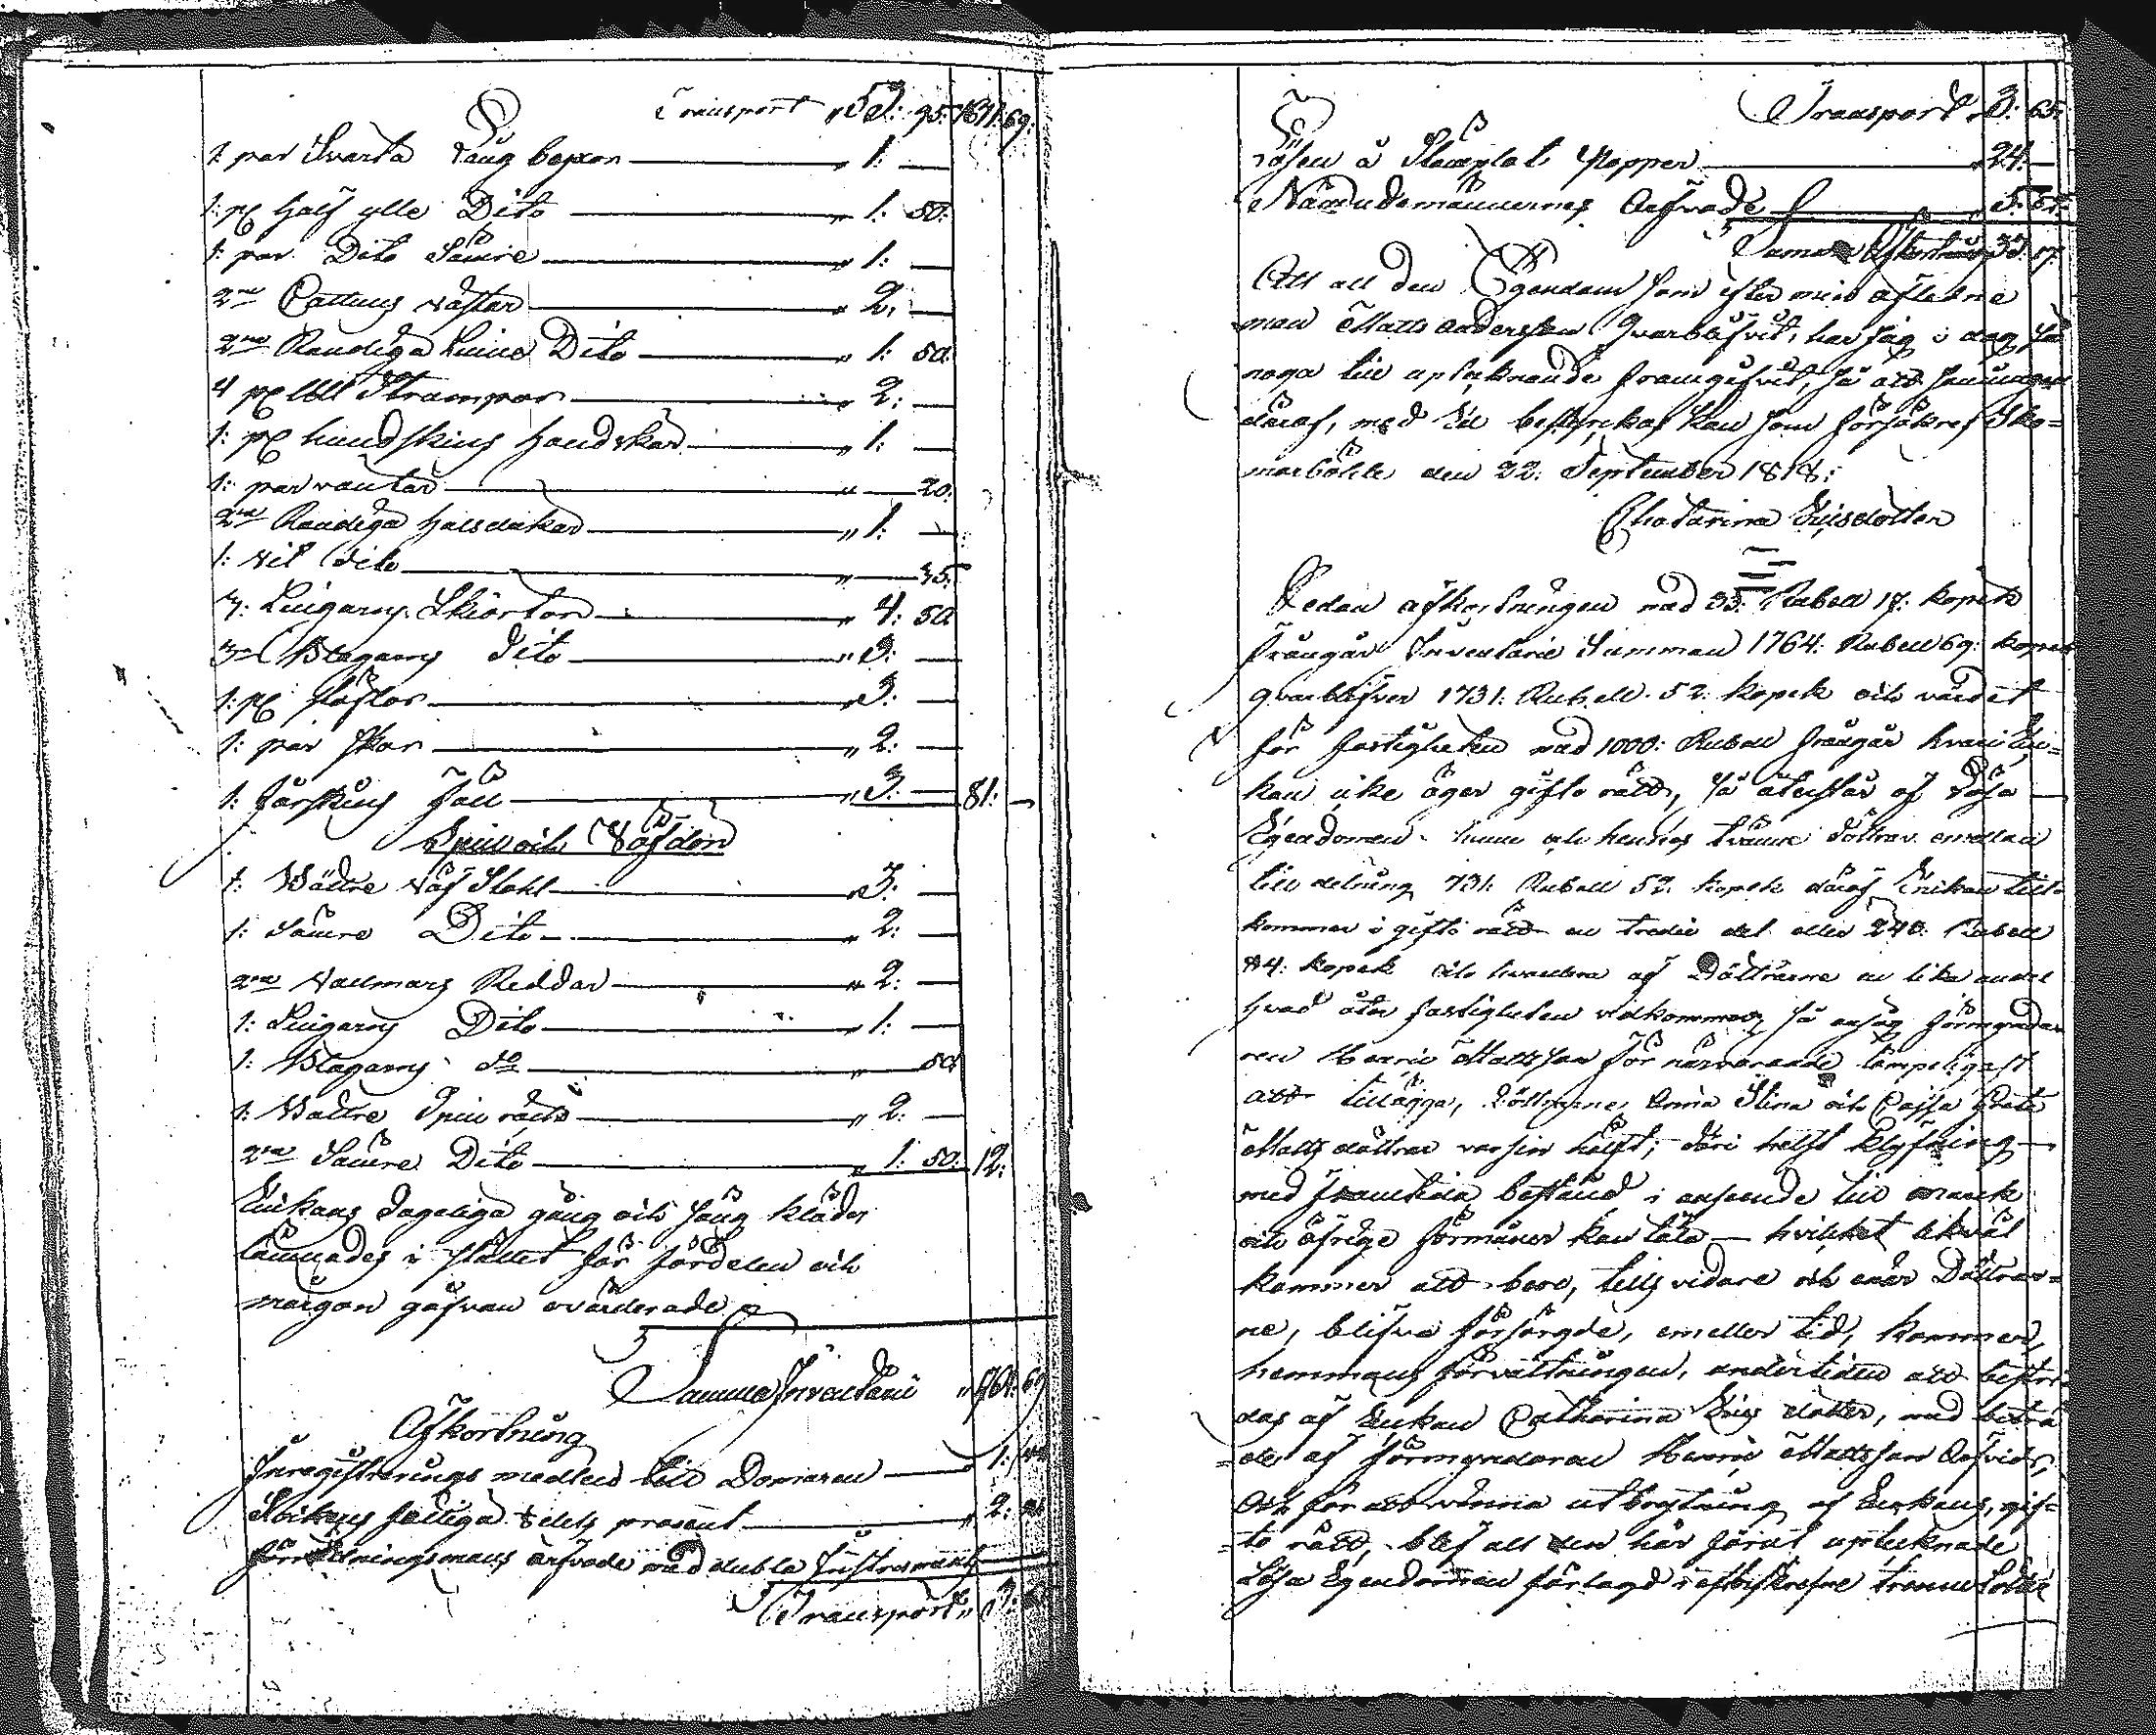 Transport „ 53: 95. 1671: 69:
1: par Svarta Tang boxon „ 1: —
1: pr half ylle Dito „ 1: 50:
1: par Dito Sämre „ 1: —
2ne Cattuns västar „ 2: —
2ne Randiga Linne Dito „ 1: 50
4 pr Ull Strumpor „ 2: —
1: pr hundskins handskar „ 1: —
1: par vantar „ — 20:
2ne Randiga halsdukar „ 1: —
1: vit dito „ — 35:
7: Lingarns Skiortor „ 4: 50
3ne Blagarns Dito „ 3: —
1: pr stöflor „ 3: —
1: par skor „ 2: —
1: fårskins fäll „ 3: — 81: —
Spin och Väfdon
1: Bättre väf Stohl „ 3: —
1: Sämre Dito „ 2: —
2ne vallmars Reddar „ 2: —
1: Lingarns Dito „ 1: —
1: Blagarns do „ — 50
1: Bättre Spin råck „ 2: —
2ne Sämre Dito „ 1: 50: 12:
Enkans dageliga gång och säng kläder
lämnades i stället för fördelen och
morgon gåfvan ovärderade
Summa Inventarii „ 1764: 69
Afkortning
Inregistrerings medlen till Domaren 1:
Sokens fattiga 2:
förrättningsmans arfvode med dubla Instrument
Transport „ 3:
Transport „ 3: 65:
Lösen å Stemplat Papper „ 24: —
Nämndemännernes Arfvode „ 5: 52:
Summa Afkortning 33: 17
Att all den Egendom som efter min aflidne
man Matts Andersson qvarblifvit, har jag i dag så
noga till uptecknande framgifvit, så att sanningen
däraf, med Ed bestyrkas kan som försäkras Sko=
marböhle den 22: September 1818:
Chatarina Ersdotter
Sedan afkortningen med 33: Rubell 17: kopek
frångår Inventarie Summan 1764: Rubell 69: kopek
qvarblifver 1731: Rubell 52: kopek och värdet
för fastigheten med 1000: Rubell frångår hvari En=
kan icke äger gifto rätt, så återstår af lösa —
Egendomen henne och hennes tvänne döttrar emellan
till delning 731: Rubell 52: kopek däraf Enkan till=
kommer i gifto rätt en tredie del eller 240: Rubell
84: kopek och hvardera af Döttrarne en lika andel
hvad åter fastigheten vidkommer, så ansåg förmyndar
ren Henric Mattsson för närvarande lämpeligast
att tillägga, Döttrarne Anna Stina och Cajsa Greta
Matts döttrar varsin hälft; däri helst klyfning —
med framtida bestånd i anseende till
och öfrige förmåner kan låta — hvilket likväl
kommer att bero, tills vidare och enär Döttrar=
ne, blifva försörgde, emeller tid, kommer,
hemmans förvaltningen, undertiden att bestri
das af Enkan Catharina Ers dotter, med biträ
de af förmyndaren Henric Mattsson
Och för att vinna utbrytning af Enkans, gif=
to rätt, blef all den här förut uptecknade
Lösa Egendomen förlagd i efterskrefne trenne Lotter